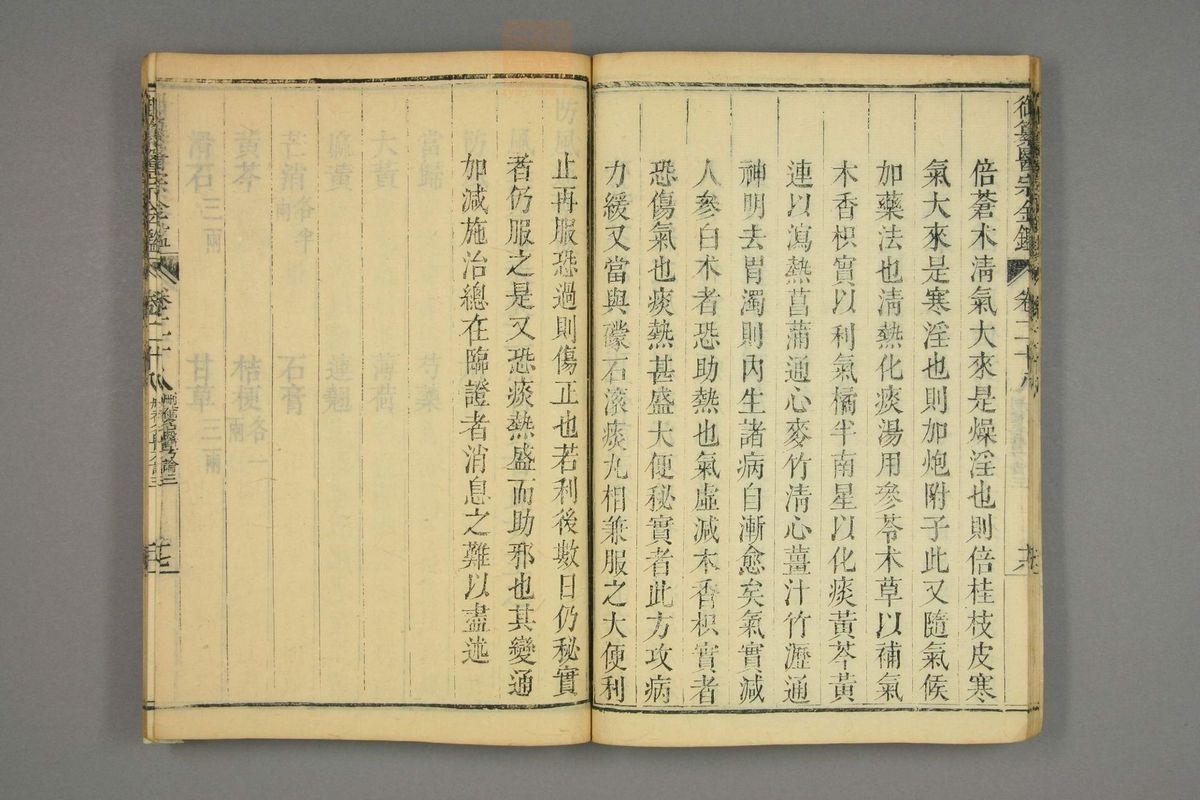 御纂醫宗金鑑 卷二十八
倍蒼朮清氣大來是燥淫也則倍桂枝皮寒
氣大來是寒淫也則加炮附子此又隨氣候
加藥法也清熱化痰湯用參苓朮草以補氣
木香枳實以利氣橘半南星以化痰黃芩黃
連以瀉熱菖蒲通心麥竹清心薑汁竹瀝通
神明去胃濁則內生諸病自漸愈矣氣實減
人參白朮者恐助熱也氣虛減木香枳實者
恐傷氣也痰熱甚盛大便秘實者此方攻病
力緩又當與礞石滾痰丸相兼服之大便利
止再服恐過則傷正也若利後數日仍秘實
者仍服之是又恐痰熱盛而助邪也其變通
加減施治總在臨證者消息之難以盡述
御纂醫宗金鑑 卷二十八 刪補名醫方論三